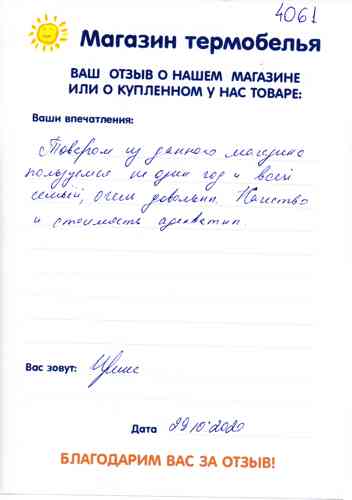 4061
Магазин термобелья
ВАШ ОТЗЫВ О НАШЕМ МАГАЗИНЕ
ИЛИ О КУПЛЕННОМ У НАС ТОВАРЕ:
Ваши впечатления:
Товаром из данного магазина
пользуемся не один год и всей
семьёй, очень довольны. Качество
и стоимость адекватны.
Вас зовут:
Дата 29.10.2020
БЛАГОДАРИМ ВАС ЗА ОТЗЫВ!